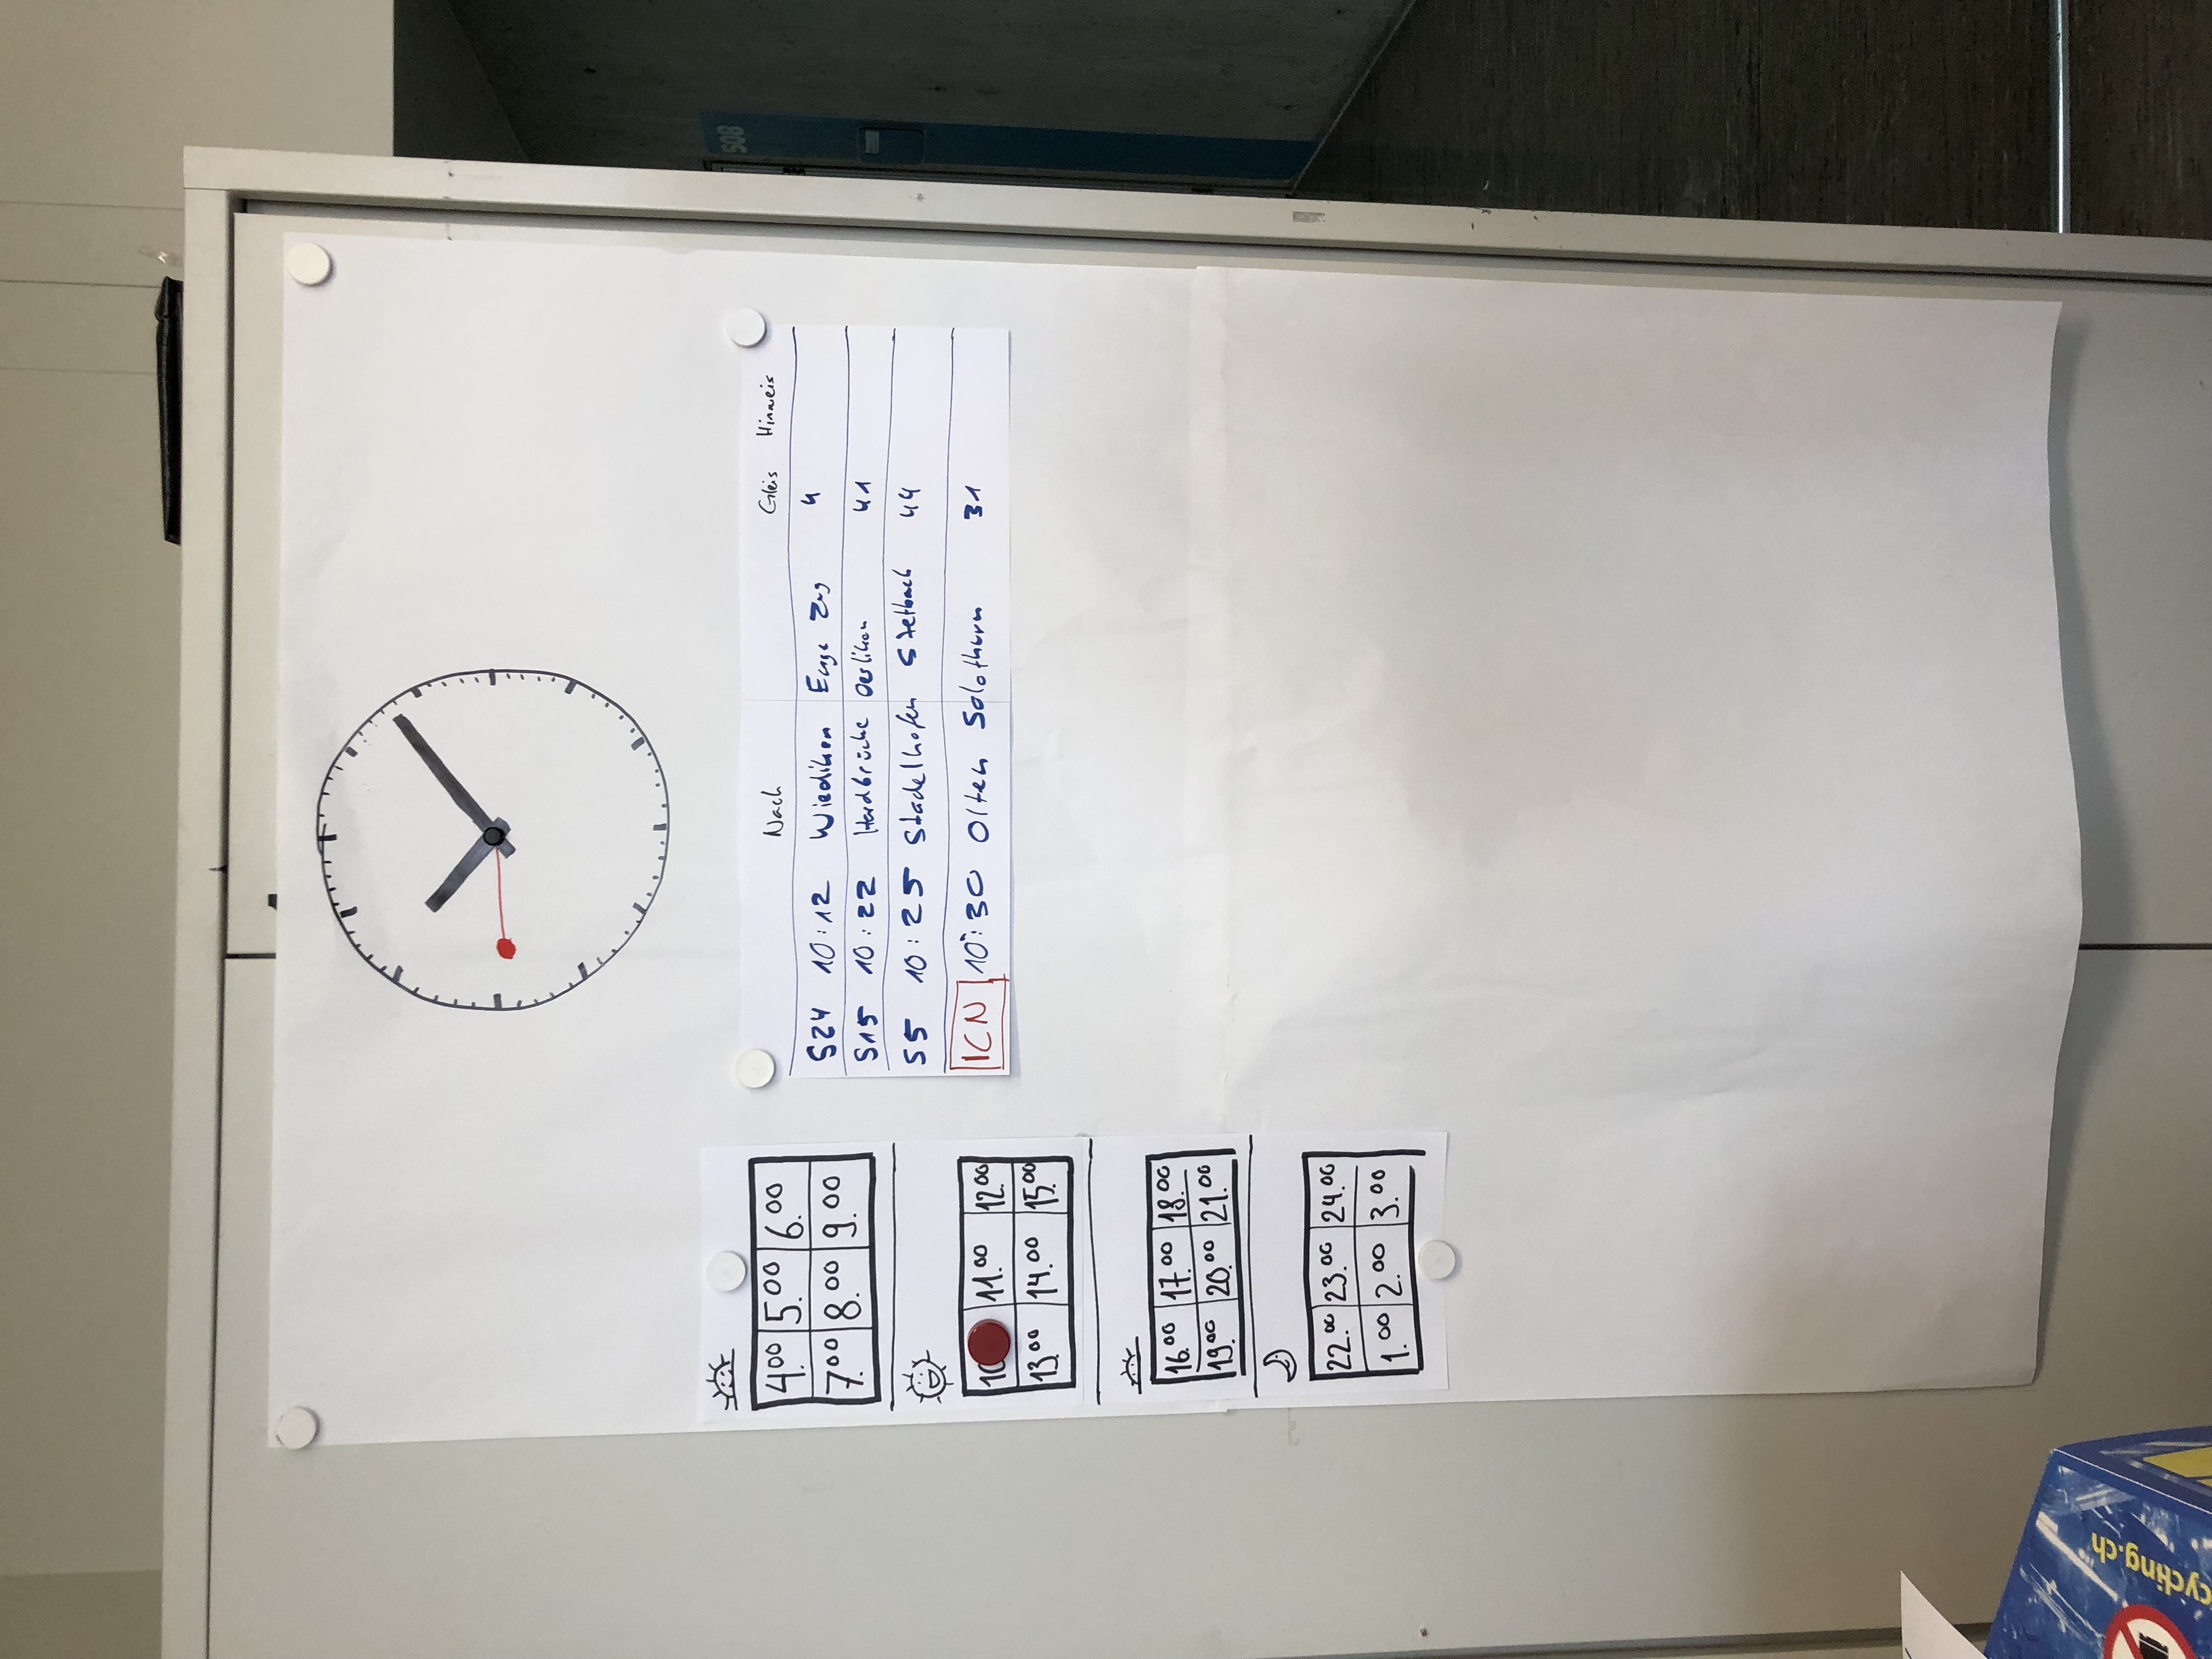 4.00 5.00 6.00
7.00 8.00 9.00
10 11.00 12.00
13.00 14.00 15.00
16.00 17.00 18.00
19.00 20.00 21.00
22.00 23.00 24.00
1.00 2.00 3.00
Nach Gleis Hinweis
S24 10:12 Wiedikon Enge Zug 4
S15 10:22 Hardbrücke Oerlikon 41
S5 10:25 Stadelhofen Stettbach 44
ICN 10:30 Olten Solothurn 31
508
cycling.ch